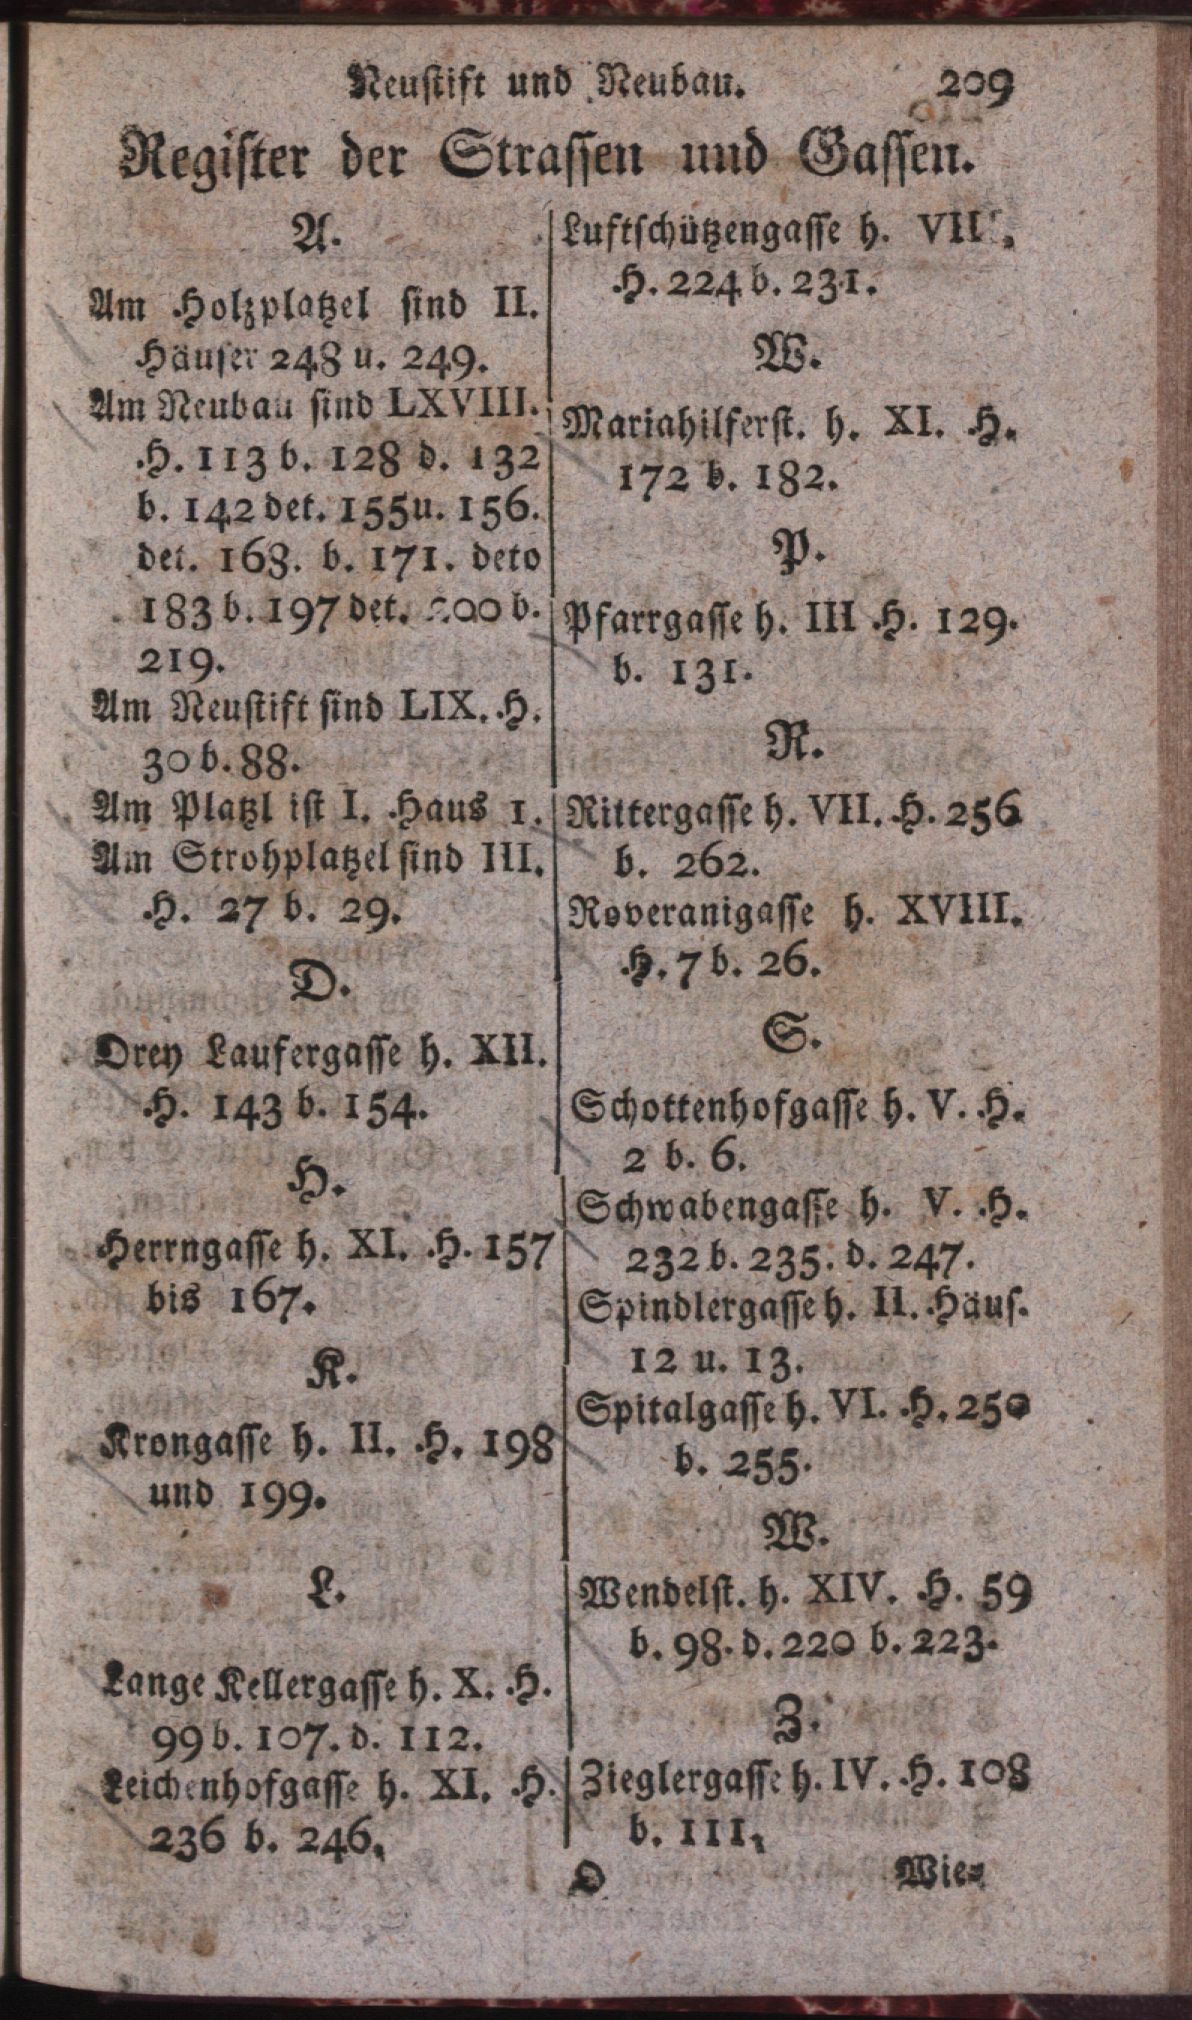 Neustift und Neubau. 209
Register der Strassen und Gassen.
A.
Am Holzplatzel sind II.
Häuser 248 u. 249.
Am Neubau sind LXVIII.
H. 113 b. 128 d. 132
b. 142 det. 155 u. 156.
det. 168. b. 171. deto
183 b. 197 det. 200 b.
219.
Am Neustift sind LIX. H.
30 b. 88.
Am Platzl ist I. Haus 1.
Am Strohplatzel sind III.
H. 27 b. 29.
D.
Drey Laufergasse h. XII.
H. 143 b. 154.
H.
Herrngasse h. XI. H. 157
bis 167.
K.
Krongasse h. II. H. 198
und 199.
L.
Lange Kellergasse h. X. H.
99 b. 107. d. 112.
Leichenhofgasse h. XI. H.
236 b. 246.
Luftschützengasse h.
H. 224 b. 231.
W.
Mariahilferst. h. XI. H.
172 b. 182.
P.
Pfarrgasse h. III H. 129.
b. 131.
R.
Rittergasse h. VII. H. 256
b. 262.
Roveranigasse h. XVIII.
H. 7 b. 26.
S.
Schottenhofgasse h. V. H.
2 b. 6.
Schwabengasse h. V. H.
232 b. 235. d. 247.
Spindlergasse h. II. Häus.
12 u. 13.
Spitalgasse h. VI. H. 250
b. 255.
W.
Wendelst. h. XIV. H. 59
b. 98. d. 220 b. 223.
Z.
Zieglergasse h. IV. H. 108
b. 111.
O Wie-